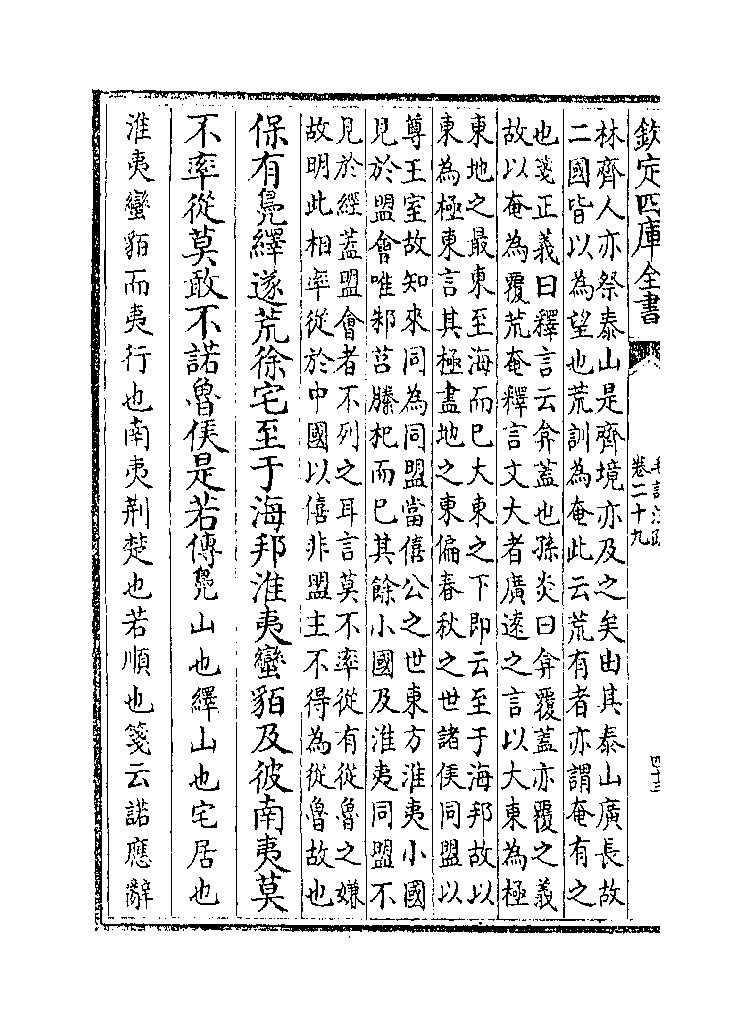 欽定四庫全書
卷二十九
林齊人亦祭泰山是齊境亦及之矣由其泰山廣長故
二國皆以為望也荒訓為奄此云荒有者亦謂奄有之
也箋正義曰釋言云弇蓋也孫炎曰弇覆蓋亦覆之義
故以奄為覆荒奄釋言文大者廣遠之言以大東為極
東地之最東至海而已大東之下即云至于海邦故以
東為極東言其極盡地之東偏春秋之世諸侯同盟以
尊王室故知來同為同盟當僖公之世東方淮夷小國
見於盟會唯邾莒滕杞而已其餘小國及淮夷同盟不
見於經蓋盟會者不列之耳言莫不率從有從魯之嫌
故明此相率從於中國以僖非盟主不得為從魯故也
保有鳧繹遂荒徐宅至于海邦淮夷蠻貊及彼南夷莫
不率從莫敢不諾魯侯是若傳鳧山也繹山也宅居也
淮夷蠻貊而夷行也南夷荆楚也若順也箋云諾應辭